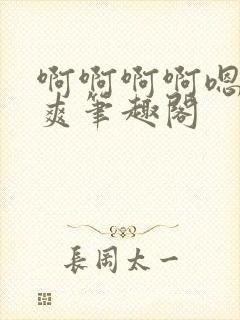 啊啊啊啊嗯
爽笔趣阁
長岡太一